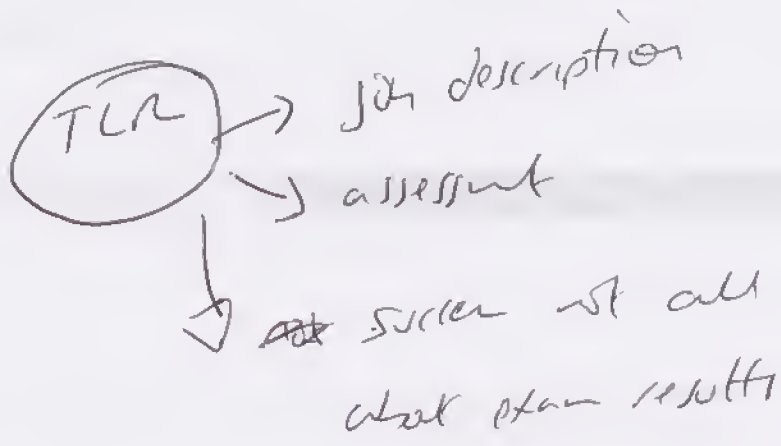 TLR
job description
assessment
success not all
about exam results